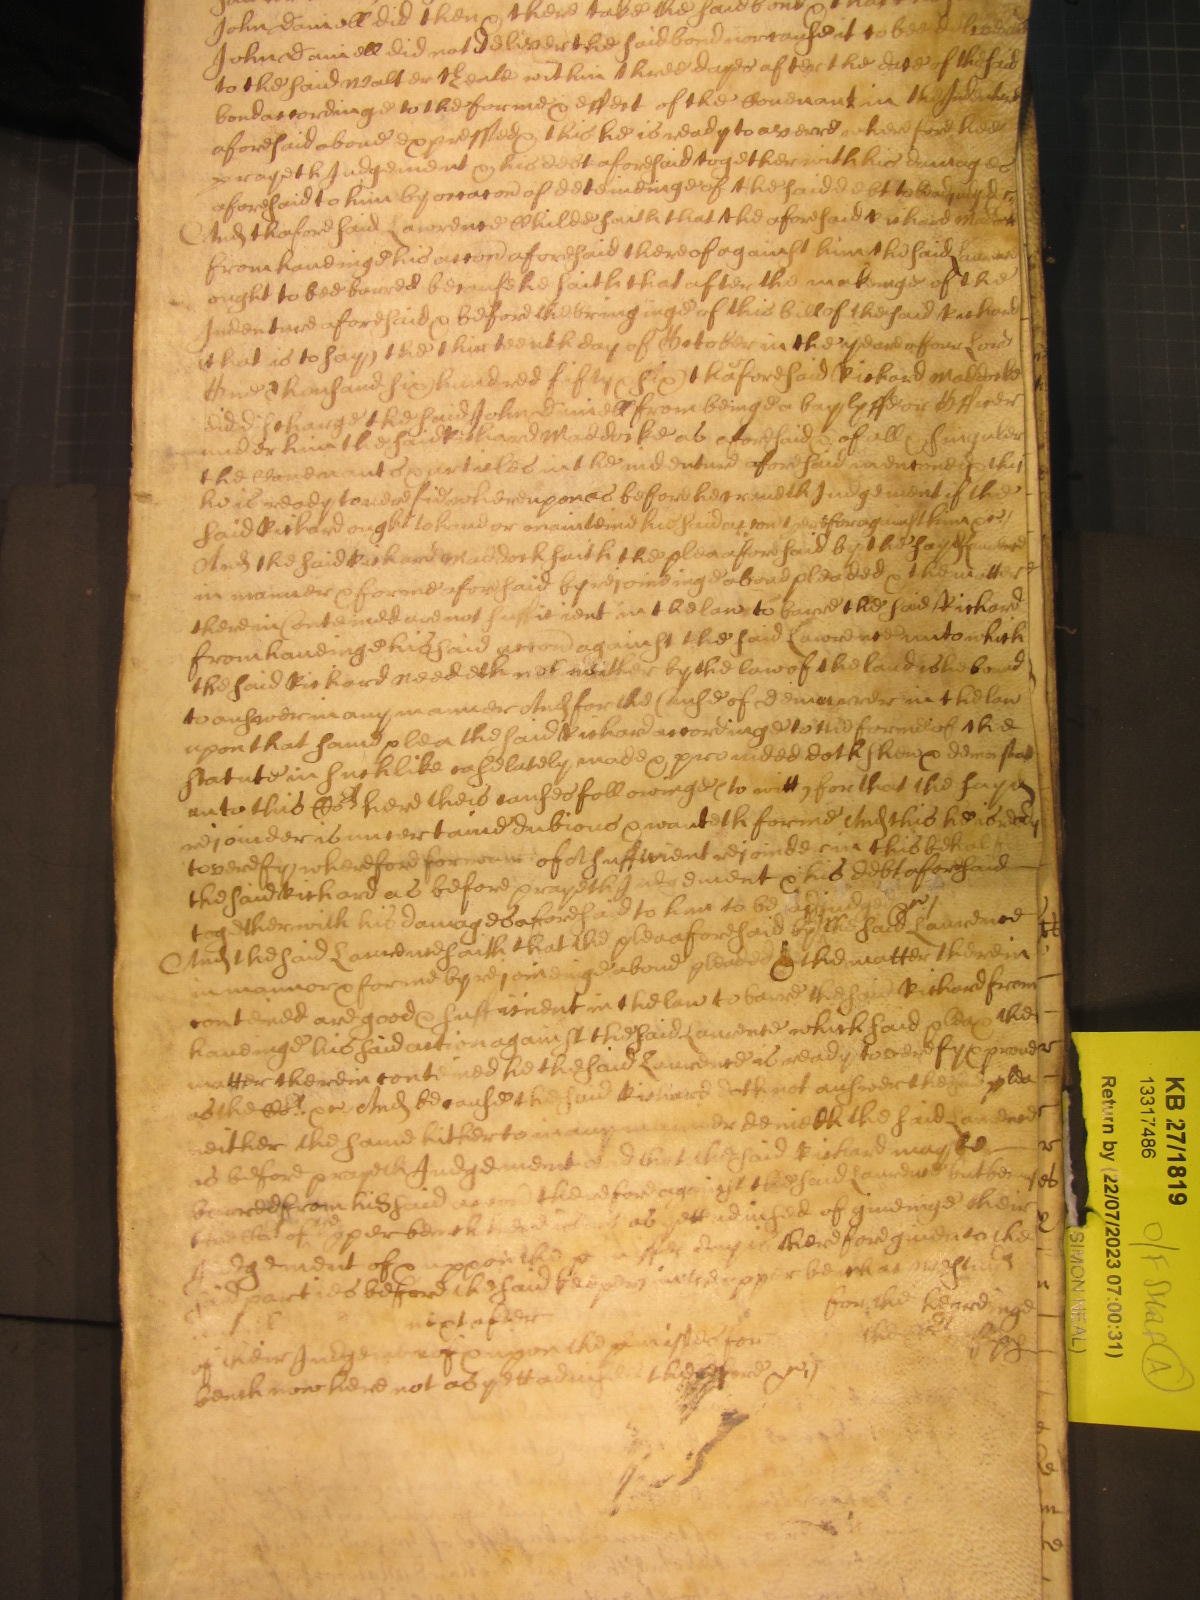 John Daniell did then & there take the said bond & that
John Daniell did not deliver the said bond nor cause it to bee delivered
to the said Walter Theale within three dayes after the date of the said
bond accordinge to the forme & effect of the Covenant in the Indenture
aforesaid above expressed & this he is ready to averre wherefore hee
prayeth Judgement & his debt aforesaid together with his damages
aforesaid to him by occacon of deteininge of the said debt to be adjudged &c
And thaforesaid Lawrence Childe saith that the aforesaid Richard Maddock
from haveinge his accon aforesaid thereof against him the said Lawrence
ought to bee barred because he saith that after the makeinge of the
Indenture aforesaid & before the bringinge of this bill of the said Richard
(that is to say) the thirteenth day of October in the yeare of our Lord
One thousand six hundred fifty & six thaforesaid Richard Maddocke
did discharge the said John Daniell from beinge a baylyffe or Officer
under him the said Richard Maddocke as aforesaid & of all & singuler
the Covenants & articles in the indenture aforesaid mencioned & this
he is ready to verefie whereupon as before he craveth Judgement if the
said Richard ought to have or mainteine his said accon therefor against him &c
And the said Richard Maddock saith the plea aforesaid by the said Lawrence
in manner & forme aforesaid by rejoindinge above pleaded & the matter
therein conteined are not sufficient in the law to barre the said Richard
from haveinge his said accon against the said Lawrence unto which
the said Richard needeth not neither by the law of the land is he bound
to answer in any manner And for the cause of demurrer in the law
upon that same plea the said Richard accordinge to the forme of the
statute in such like case lately made & provided doth shew & demonstrate
unto this Court here theis causes followinge (to witt) for that the sayd
rejoinder is uncertaine dubious & wanteth forme And this he is ready
to verefy wherefore for want of a sufficient rejoinder in this behalf
the said Richard as before prayeth Judgement & his debt aforesaid
together with his damages aforesaid to him to be adjudged &c
And the said Lawrence saith that the plea aforesaid by the said Lawrence
in mannor & forme by rejoineinge above pleaded & the matter therein
conteined are good & sufficient in the law to barre the said Richard from
haveinge his said action against the said Lawrence which said plea & the
matter therein conteined he the said Lawrence is ready to verefy & prove
as the Court &c And because the said Richard doth not answer the said plea
neither the same hitherto in any manner denieth the said Lawrence
as before prayeth Judgement and that the said Richard may be
barred from his said accon therefore against the said Lawrence but because
the Court of upper bench here is not as yett advised of giveinge their
Judgement of & uppon the premisses day is therefore given to the
said parties before the said keepers in the upper bench at Westm
next after for the heareinge
of their Judgement of & upon the premisses for the Court of upper
bench now here not as yett advised thereof &c
KB 27/1819
13317486
Return by (22/07/2023 07:00:31)
SIMON NEAL)
O/F Staff A